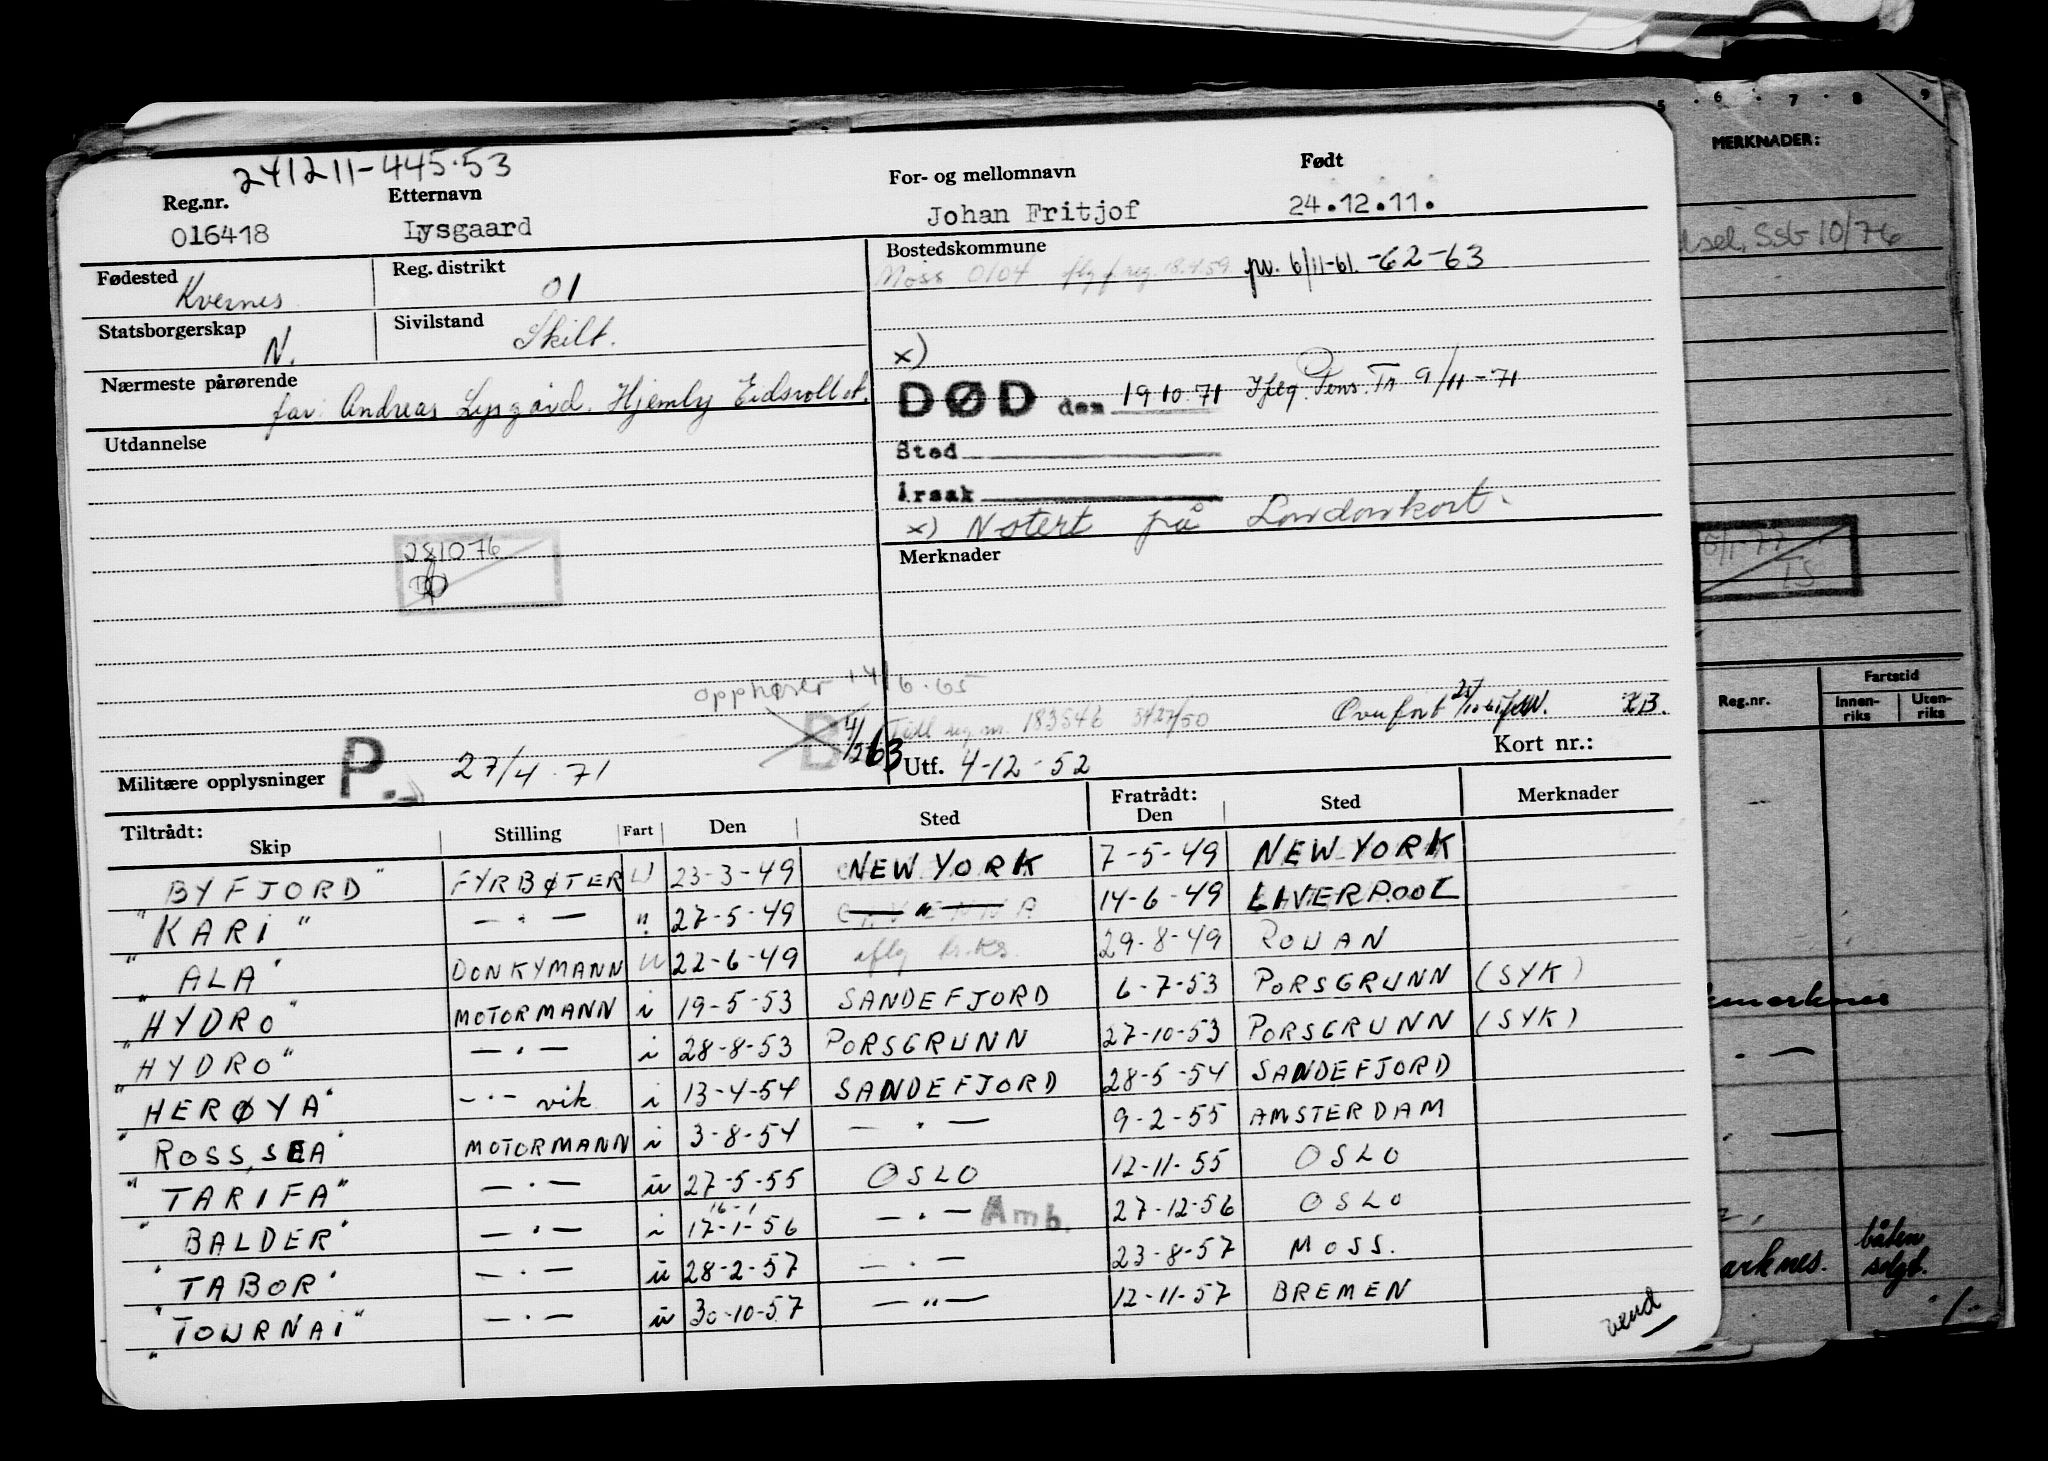 241211-445.53
Reg.nr. Etternavn For- og mellomnavn Født
016418 Lysgaard Johan Fritjof 24.12.11.
Fødested Kvernes Reg. distrikt 01
Bostedskommune
Moss 0104 18.4.59. 6/11-61.-62-63
Statsborgerskap N. Sivilstand Skilt.
x)
Nærmeste pårørende
far: Andreas Lysgård. Hjemly Eidsvoll st.
DØD den 19 10.71 Iflg. Pens. Tr 9/11-71
Utdannelse
Sted
Årsak
x) Notert på Londonkort.
281076
Merknader
opphører 14/6.65
183546
Overført
Kort nr.:
Militære opplysninger P. 27/4.71 B Utf. 4-12-52
Tiltrådt: Skip Stilling Fart Den Sted Fratrådt: Den Sted Merknader
"BYFJORD" FYRBØTER U 23-3-49 NEW YORK 7-5-49 NEW YORK
"KARI" — · — " 27-5-49 14-6-49 LIVERPOOL
"ALA" DONKYMANN U 22-6-49 29-8-49 ROUAN
"HYDRO" MOTORMANN i 19-5-53 SANDEFJORD 6-7-53 PORSGRUNN (SYK)
"HYDRO" — · — i 28-8-53 PORSGRUNN 27-10-53 PORSGRUNN (SYK)
"HERØYA" — · — vik i 13-4-54 SANDEFJORD 28-5-54 SANDEFJORD
"ROSS SEA" MOTORMANN i 3-8-54 — · — 9-2-55 AMSTERDAM
"TARIFA" — · — u 27-5-55 OSLO 12-11-55 OSLO
16-1
"BALDER" — · — i 17-1-56 — · — Amb. 27-12-56 OSLO
"TABOR" — · — u 28-2-57 — · — 23-8-57 MOSS.
"TOURNAI" — · — u 30-10-57 — " — 12-11-57 BREMEN
vend
5 · 6 · 7 · 8 · 9
MERKNADER:
SSG 10/76
6/1-77
TS
Reg.nr. Fartstid
Innen-riks Uten-riks
båten
solgt.